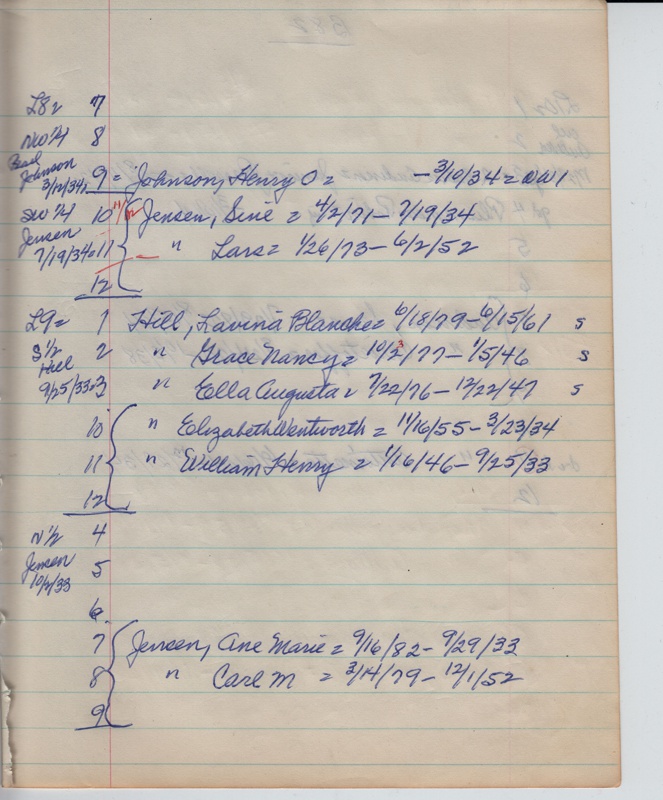 L8= 7
NW 1/4 8
Pearl
Johnson
3/12/34= 9 = Johnson, Henry O = - 3/10/34 = WW1
SW 1/4 10 Jensen, Sine = 4/2/71 - 7/19/34
Jensen
7/19/34= 11 " Lars = 1/26/73 - 6/2/52
12
L9= 1 Hill, Lavina Blanche = 6/18/79 - 6/15/61 s
S 1/2 2 " Grace Nancy = 10/23/77 - 1/5/46 s
Hill
9/25/33= 3 " Ella Augusta = 7/22/76 - 12/22/47 s
10 " Elizabeth Wentworth = 11/16/55 - 3/23/34
11 " William Henry = 1/16/46 - 9/25/33
12
N 1/2 4
Jensen 5
10/2/33
6
7 Jensen, Ane Marie = 9/16/82 - 9/29/33
8 " Carl M = 3/14/79 - 12/1/52
9